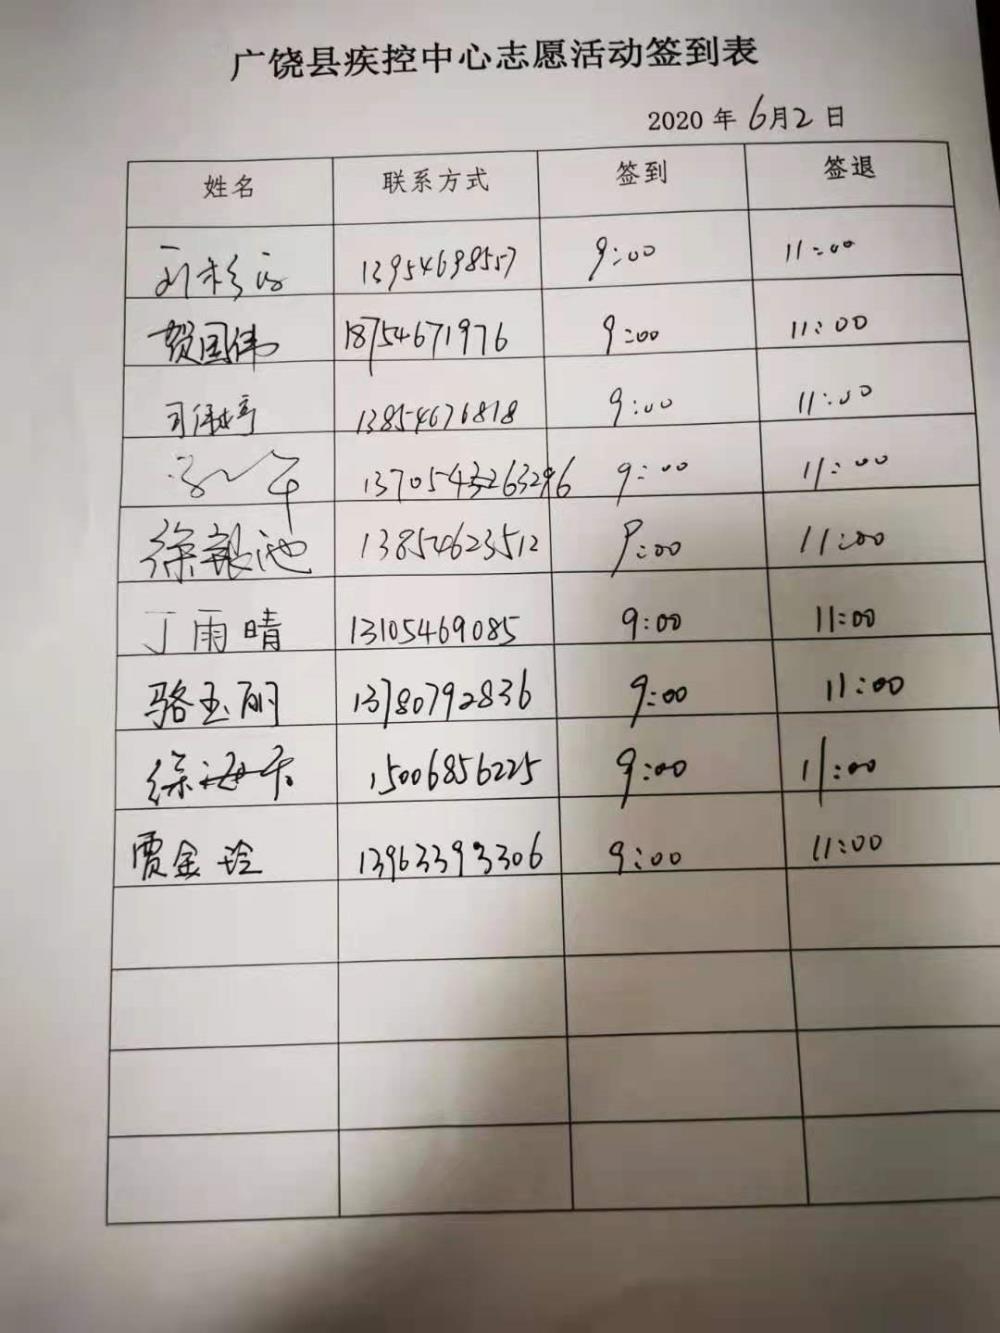 广饶县疾控中心志愿活动签到表
2020 年 6月2 日
姓名 联系方式 签到 签退
13954698557 9:00 11:00
贺国伟 18754671976 9:00 11:00
13854676818 9:00 11:00
9:00 11:00
徐银池 13854623512 9:00 11:00
丁雨晴 13105469085 9:00 11:00
骆玉丽 13780792836 9:00 11:00
徐海 15006856225 9:00 11:00
贾金玲 13963393306 9:00 11:00